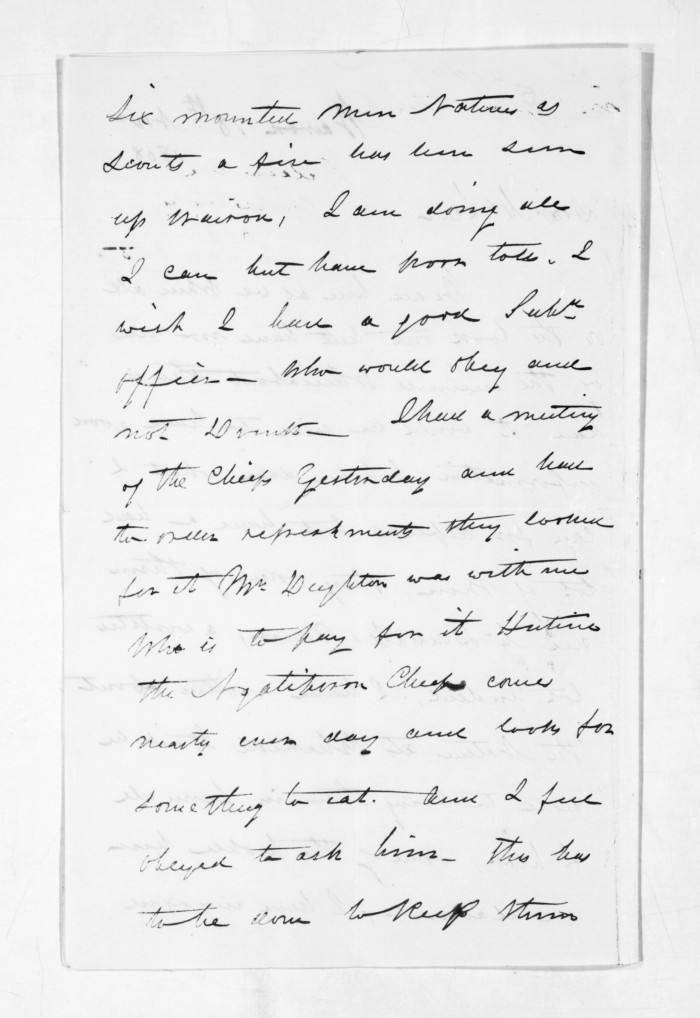 Six mounted men Natives as
Scouts a fire has been seen
up Wairoa, I am doing all
I can but have poor tols. I
wish I had a good Subn
officer — Who would obey and
not Drink — I had a meeting
of the Cheefs Yesterday and had
to order refreshments they looked
for it Mr Deighton was with me
Who is to pay for it
the Cheef comes
nearly even day and looks for
something to eat. And I feel
obeyed to ask him — This has
to be done to Keep them